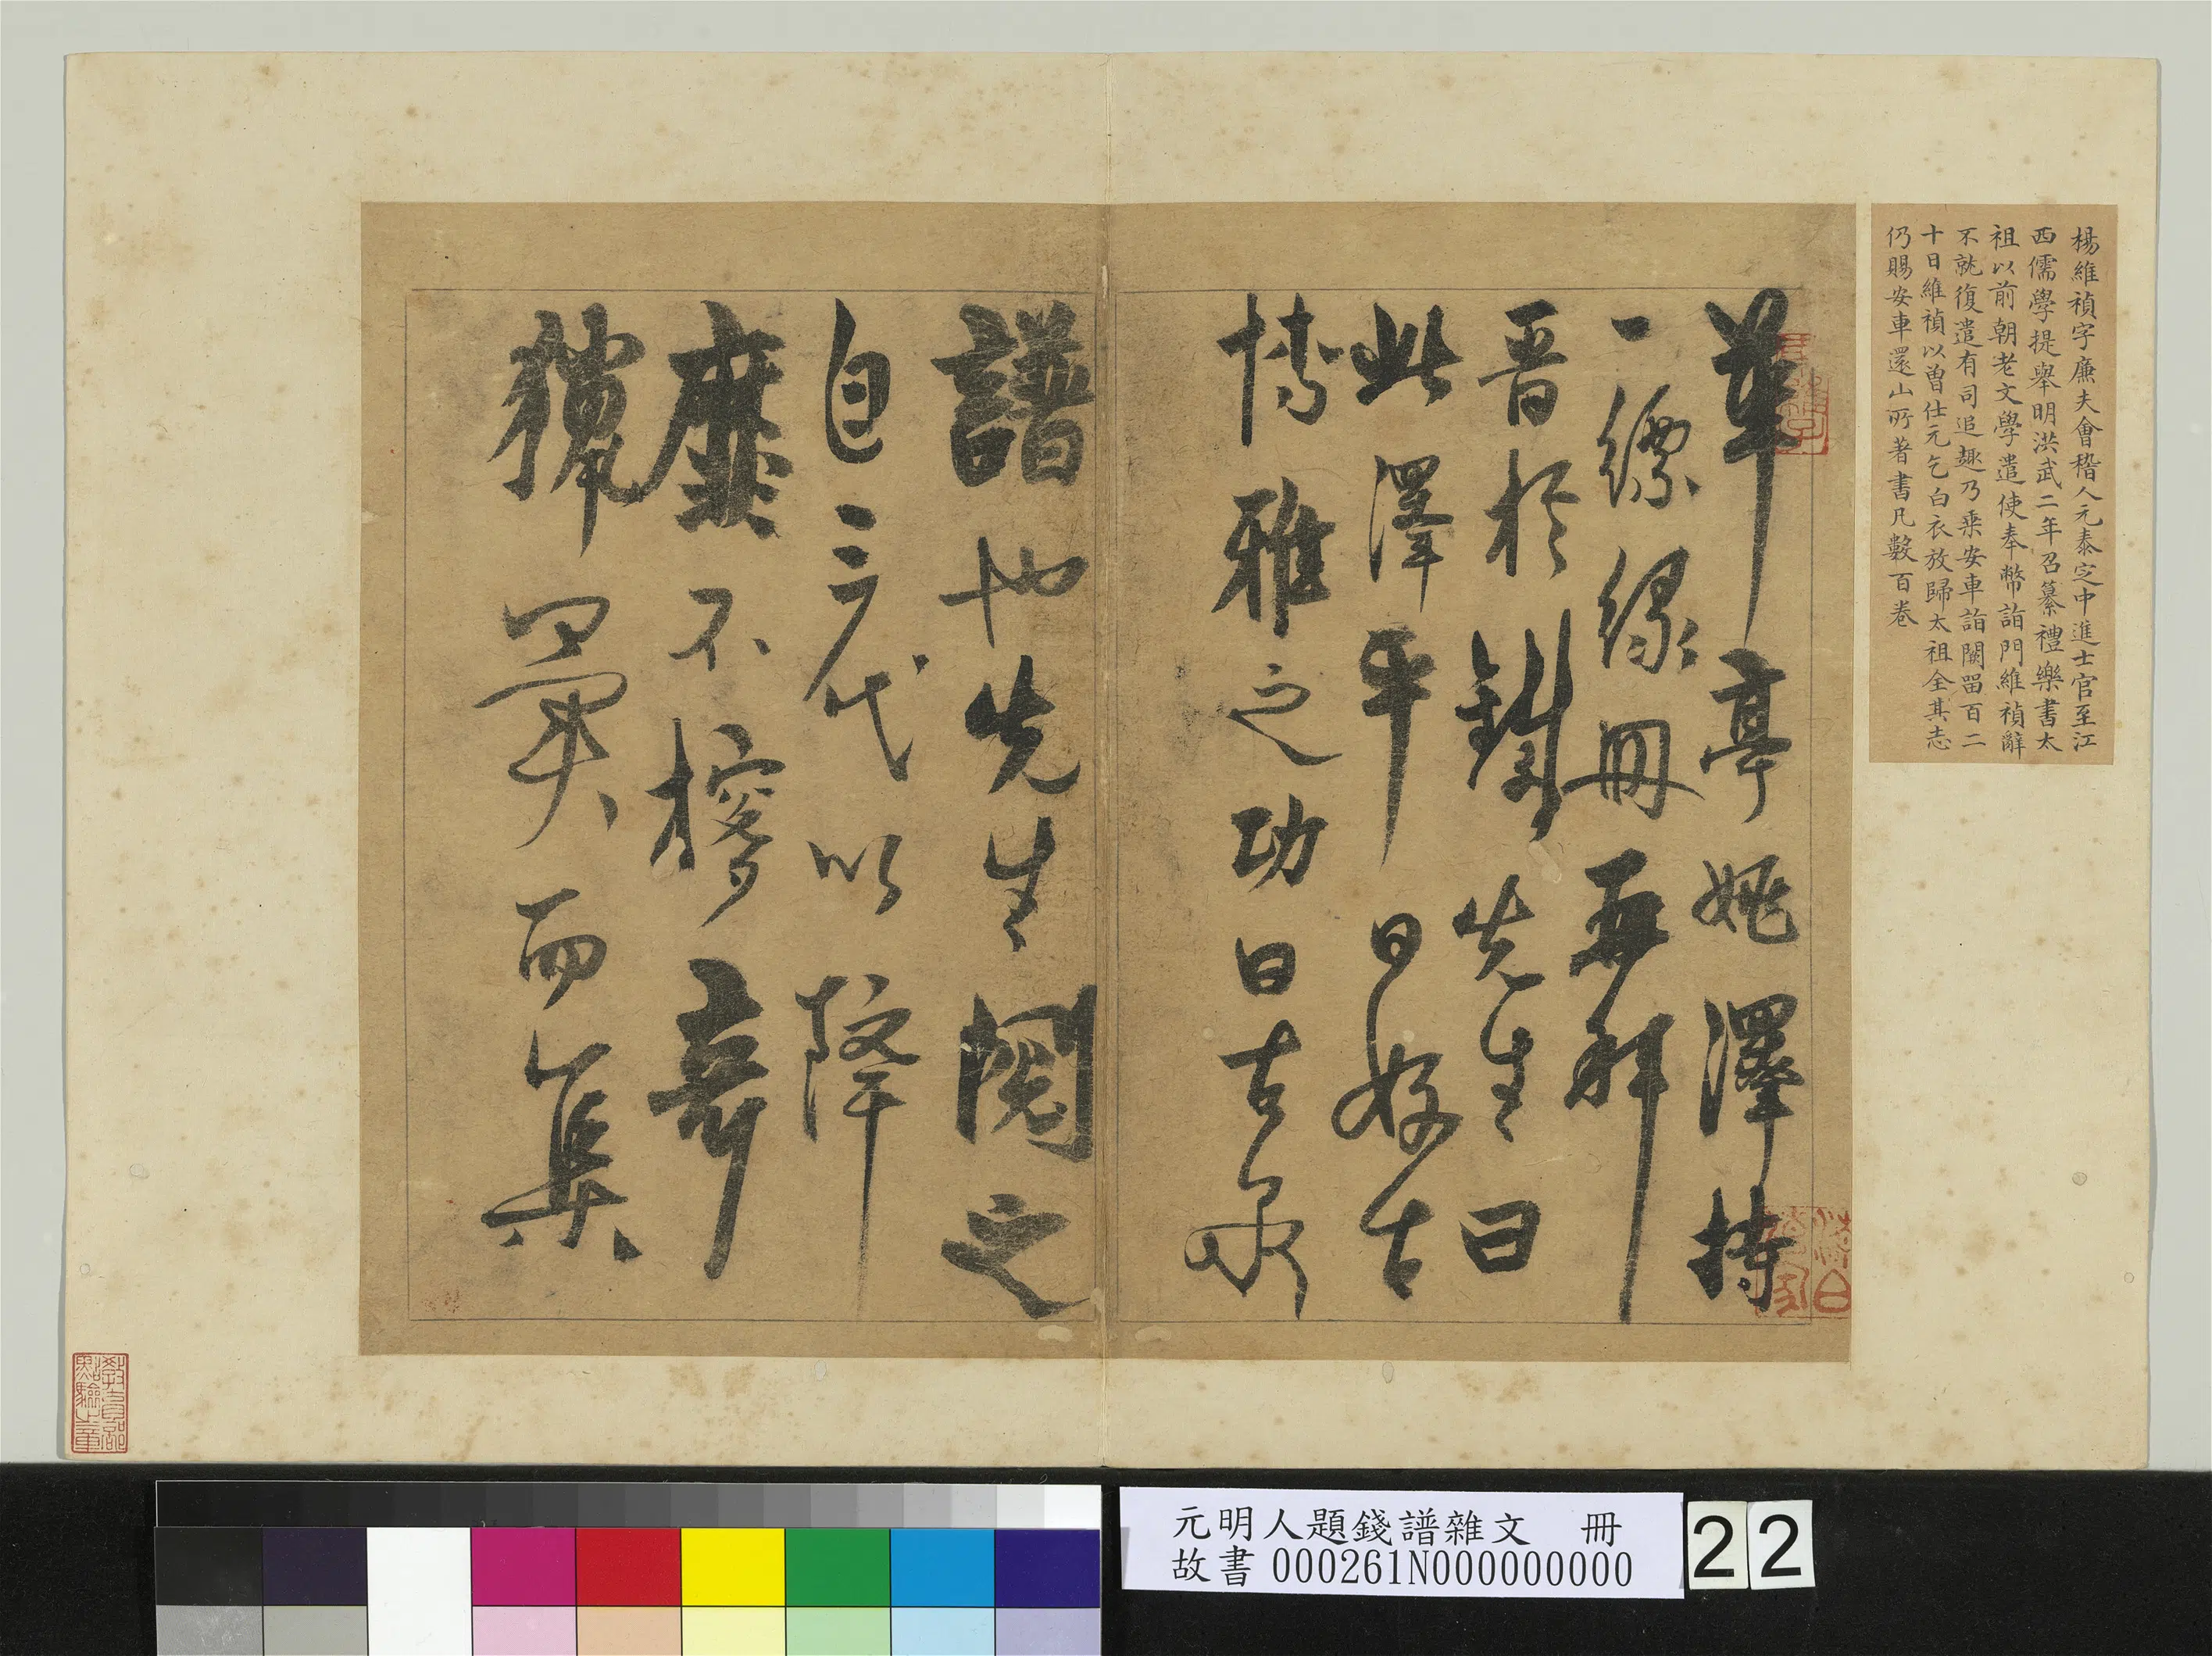 楊維禎字廉夫會稽人元泰定中進士官至江
西儒學提舉明洪武二年召纂禮樂書太
祖以前朝老文學遣使奉幣詣門維禎辭
不就復遣有司追趣乃乘安車詣闕留百二
十日維禎以曾仕元乞白衣放歸太祖全其志
仍賜安車還山所著書凡數百卷
華亭姚澤持
一縹緑冊再拜
晋於鐵先生曰
此澤平日好古
博雅之功曰古泉
譜也先生閱之
自三代以降
靡不
彙而集
教育部
點驗之章
元明人題錢譜雜文 冊
故書 000261N000000000
22